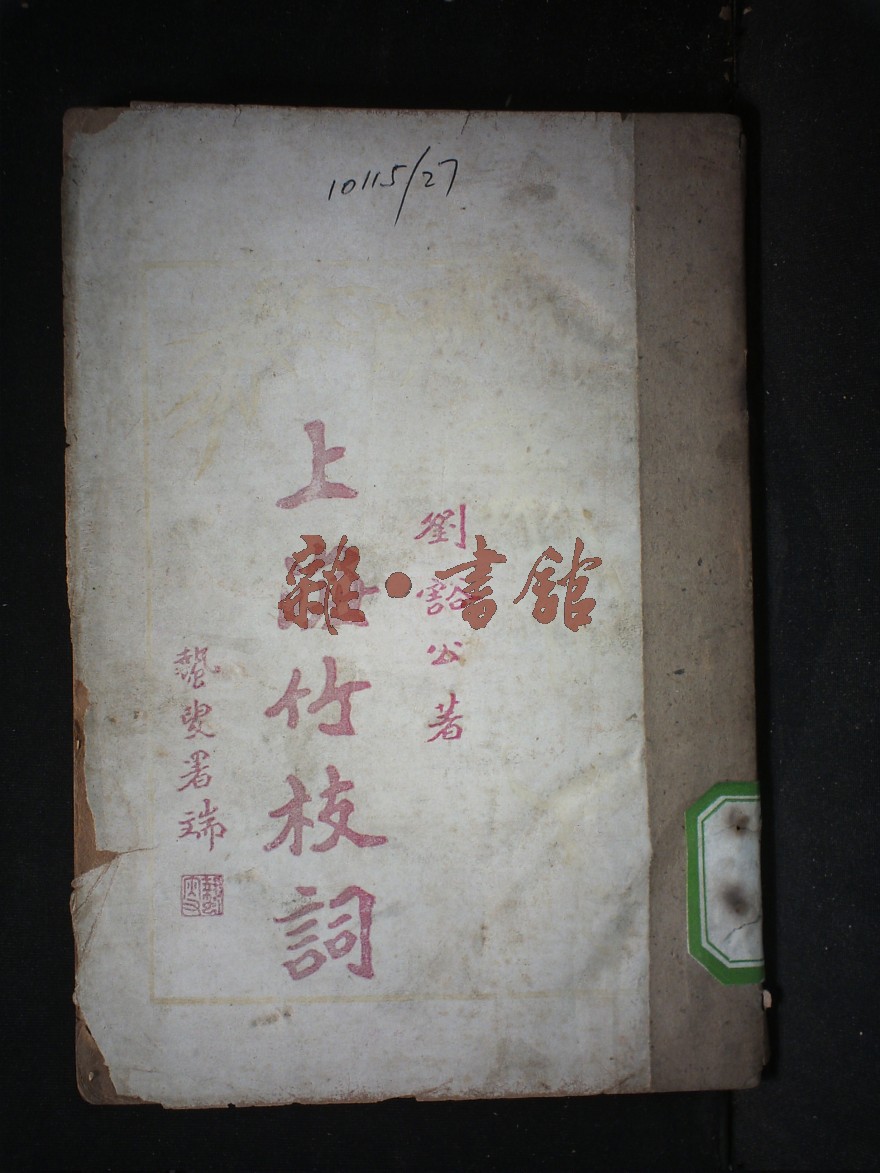 10115/27
劉豁公著
上海竹枝詞
叟署端
雜·書館